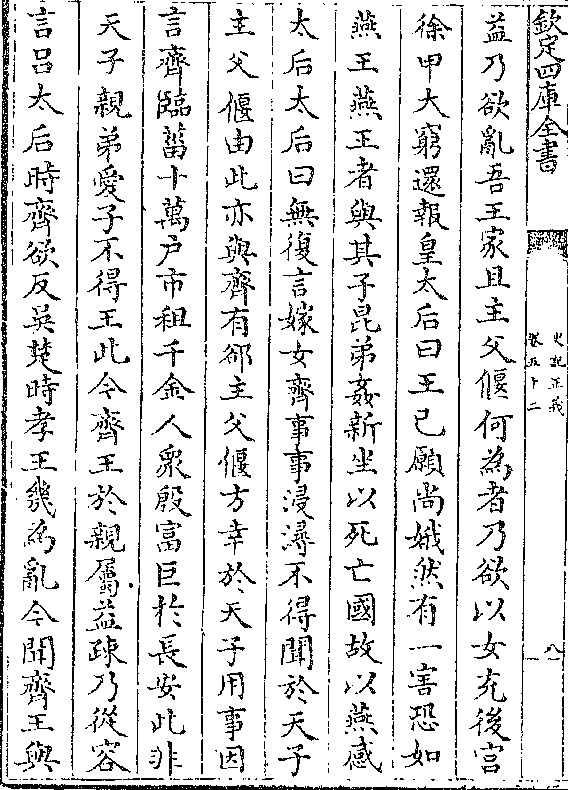 欽定四庫全書
史記正義
卷五十二
八
益乃欲亂吾王家且主父偃何為者乃欲以女充後宫
徐甲大窮還報皇太后曰王已願尚娥然有一害恐如
燕王燕王者與其子昆弟姦新坐以死亡國故以燕感
太后太后曰無復言嫁女齊事事浸潯不得聞於天子
主父偃由此亦與齊有郤主父偃方幸於天子用事因
言齊臨菑十萬户市租千金人衆殷富巨於長安此非
天子親弟愛子不得王此今齊王於親屬益疎乃從容
言吕太后時齊欲反吳楚時孝王幾為亂今聞齊王與